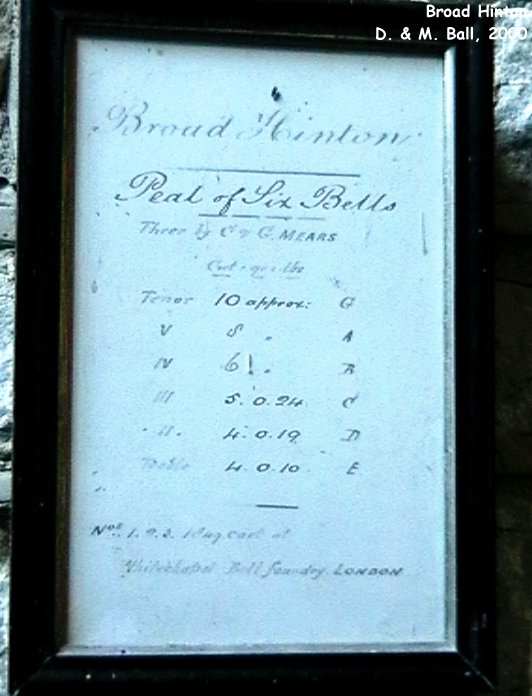 Broad Hinton
D. & M. Ball, 2000
Broad Hinton
Peal of Six Bells
Three by C & G. MEARS
Cwt - qrs - lbs
Tenor 10 approx: G
V 8 " A
IV 6 " B
III 5. 0. 24 C
II. 4. 0. 19 D
Treble 4. 0. 10. E
Nos. 1. 2. 3. cast at
Whitechapel Bell foundry. LONDON